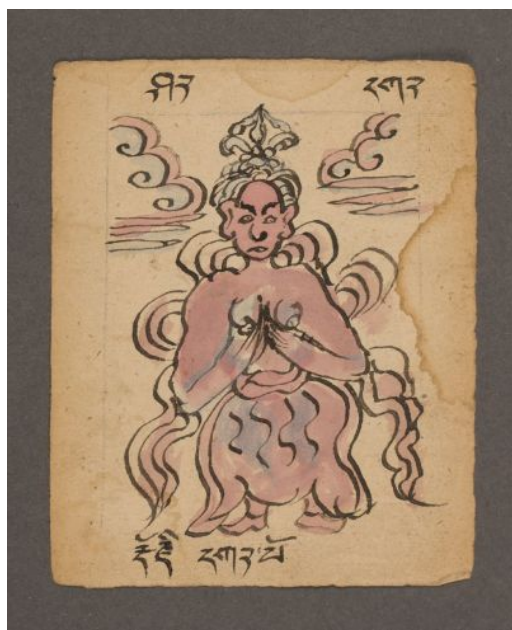 ཤར དཀར
རྡོརྗེ དཀར་པོ